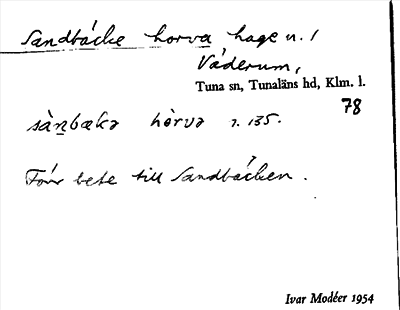 Sandbäcke horva hage n. 1
Väderum,
Tuna sn, Tunaläns hd, Klm. l.
78
sàn̲bæka hòrva 1. 135.
Förr bete till Sandbäcken.
Ivar Modéer 1954